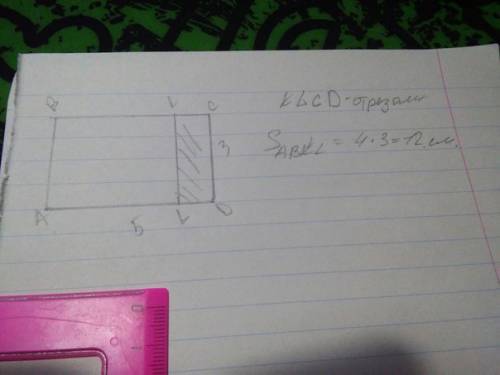 B L C
KLCD-отрезали
3
S ABKL = 4·3=12 см.
A 5 L D
0
1